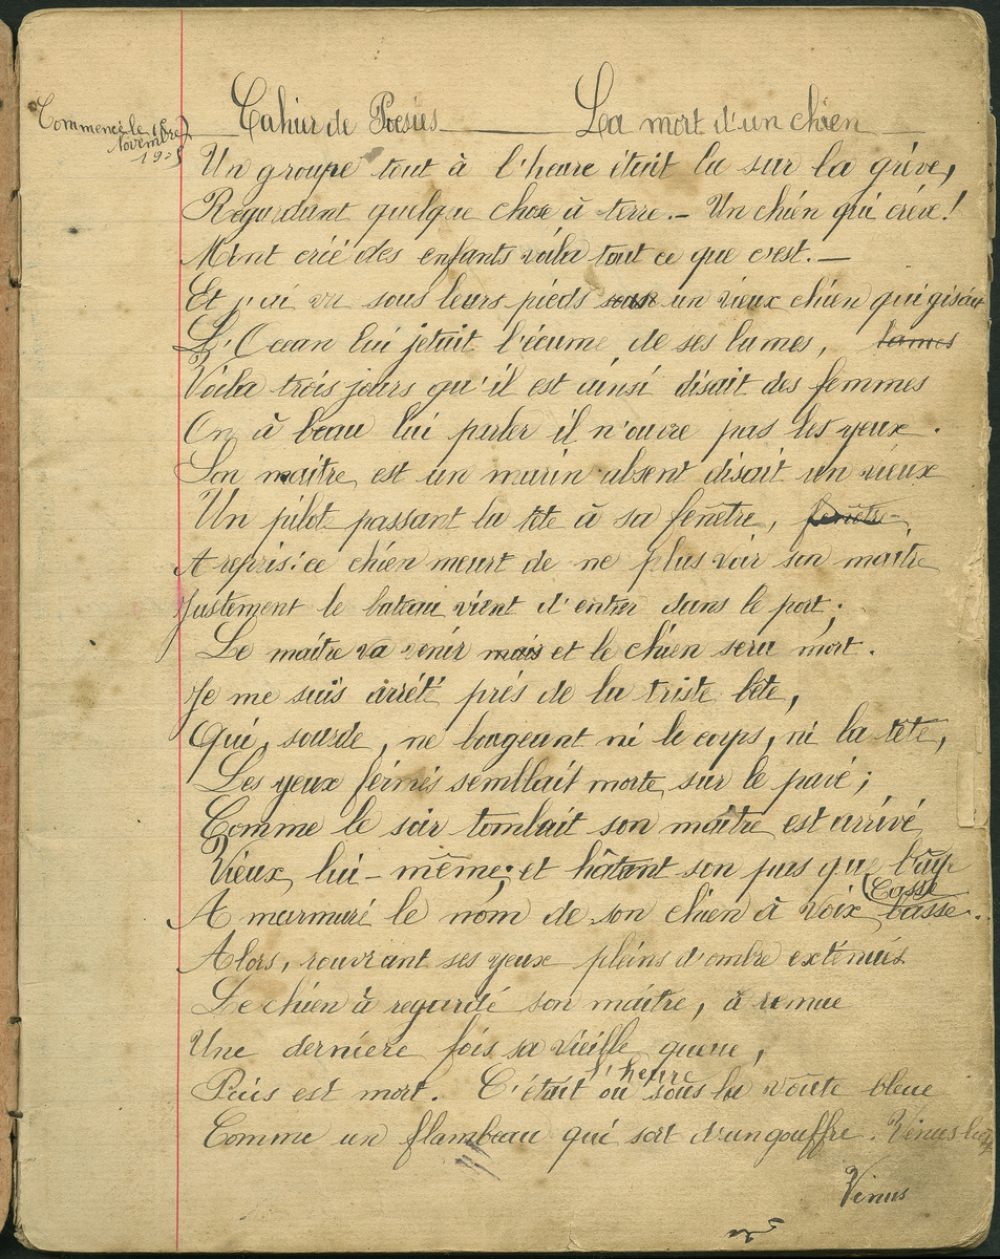 Commencé le 16
novembre
1905
Cahier de Poésies — La mort d'un chien
Un groupe tout à l'heure était la sur la grève,
Regardant quelque chose à terre. – Un chien qui crève!
M'ont crié des enfants voila tout ce que c'est. —
Et j'ai vu sous leurs pieds un vieux chien qui gisait
L'Ocean lui jetait l'écume de ses lames, lames
Voila trois jours qu'il est ainsi disait des femmes
On à beau lui parler il n'ouvre pas les yeux.
Son maitre est un marin absent disait un vieux
Un pilote passant la tête à sa fenêtre, fenêtre
A repris: ce chien meurt de ne plus voir son maitre
Justement le bateau vient d'entrer dans le port;
Le maitre va venir mais et le chien sera mort.
Je me suis arrêté près de la triste bête,
Qui, sourde, ne bougeant ni le corps, ni la tête,
Les yeux fermés semblait morte sur le pavé;
Comme le soir tombait son maitre est arrivé
Vieux lui-même; et hâtant son pas que l'âge
(Casse
A murmuré le nom de son chien à voix basse.
Alors, rouvrant ses yeux pleins d'ombre exténués
Le chien à regardé son maitre, à remue
Une derniere fois sa vieille queue,
Puis est mort. C'était l'heure ou sous la voûte bleue
Comme un flambeau qui sort d'un gouffre. Vénus
Vénus